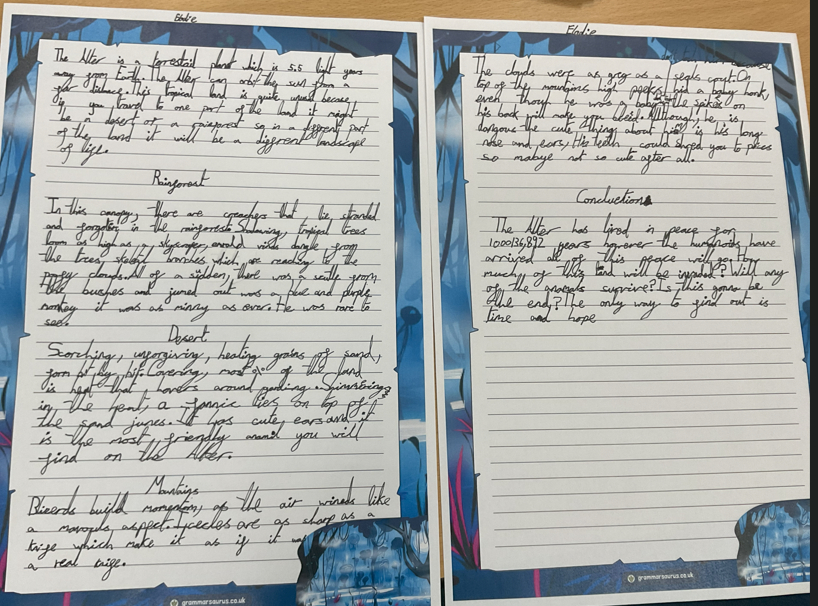 Elodie
The Alter is a forrestail planet which is 5.5 light years
away from Earth. The Alter can orbit the sun from a
far distance. This tropical land is quite unusal because
if you travel to one part of the land it might
be a desert or a rainforest so in a different part
of the land it will be a different landscape
of life.
Rainforest
In this canopy, there are creachers that lie stranded
and forgoten in the rainforests. Shadowing, tropical trees
loom as high as a skyscraper, vines dangle from
the trees skeletal branches which are reaching to the
clouds. All of a sudden, there was a scuttle from
the bushes and jumed out was a blue and purple
monkey it was as as ever. He was rare to
see.
Desert
Scorching, unforgiving, heating grains of sand,
form bit by bit. Covering, most of the land
is heat that hovers around
in the heat, a fennic lies on top of
the sand It has cute ears and it
is the most friendly you will
find on the Alter.
Mountains
build momentum, as the air winds like
a aspect. are as sharp as a
knige which make it as if it
a real knige.
Elodie
The clouds were as grey as a seals On
top of the mountains high peeks hid a baby honk,
even though he was a baby the spikes on
his back will make you bleed. Although, he is
the cute thing about is his long
nose and ears, His teeth could shred you to peices
so mabye not so cute after all.
The Alter has lived in peace for
years however the humanoids have
arrived all of this peace will go. How
much of this land will be Will any
of the survive? Is this gonna be
the end? The only way to find out is
time and hope
grammarsaurus.co.uk
grammarsaurus.co.uk